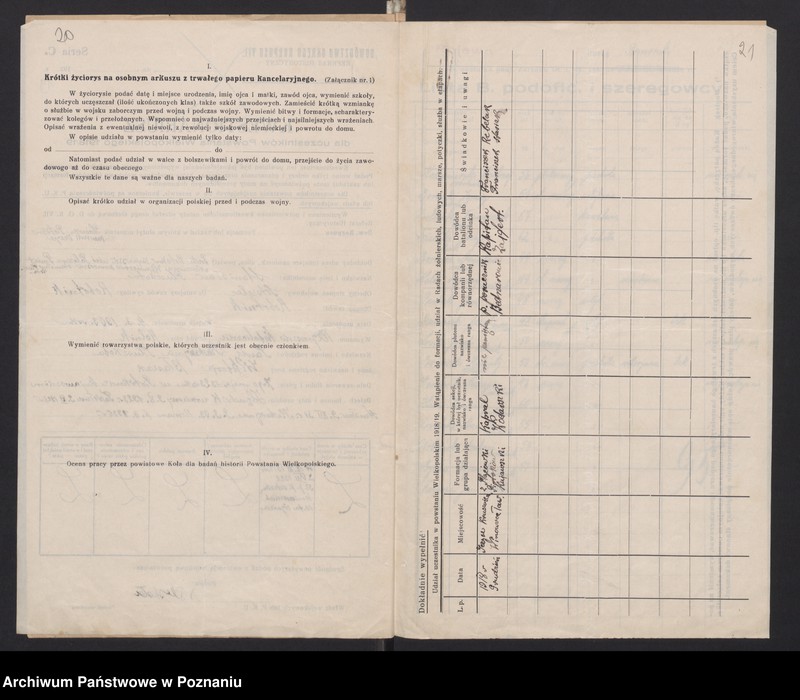 20
I.
Krótki życiorys na osobnym arkuszu z trwałego papieru kancelaryjnego. (Załącznik nr. 1)
W życiorysie podać datę i miejsce urodzenia, imię ojca i matki, zawód ojca, wymienić szkoły,
do których uczęszczał (ilość ukończonych klas) także szkół zawodowych. Zamieścić krótką wzmiankę
o służbie w wojsku zaborczym przed wojną i podczas wojny. Wymienić bitwy i formacje, scharakteryzować
kolegów i przełożonych. Wspomnieć o najważniejszych przejściach i najsilniejszych wrażeniach.
Opisać wrażenia z ewentualnej niewoli, z rewolucji wojskowej niemieckiej i powrotu do domu.
W opisie udziału w powstaniu wymienić tylko daty:
od do
Natomiast podać udział w walce z bolszewikami i powrót do domu, przejście do życia zawodowego
aż do czasu obecnego
Wszystkie te dane są ważne dla naszych badań.
II.
Opisać krótko udział w organizacji polskiej przed i podczas wojny.
III.
Wymienić towarzystwa polskie, których uczestnik jest obecnie członkiem
IV.
Ocena pracy przez powiatowe Koła dla badań historii Powstania Wielkopolskiego.
21
Dokładnie wypełnić:
Udział uczestnika w powstaniu Wielkopolskim 1918/19. Wstąpienie do formacji, udział w Radach żołnierskich, ludowych, marsze, potyczki, służba w etapach
L. p.
Data
Miejscowość
Formacja lub
grupa działająca
Dowódca sekcji,
w której był uczestnik,
nazwisko i ówczesna
ranga
Dowódca plutonu
nazwisko
i ówczesna ranga
Dowódca
kompanii lub
równorzędnej
Dowódca
bataljonu lub
odcinka
Świadkowie i uwagi
1918 r
Grudzień
Inowrocław
Kapral
Kapitan
Franciszek
Franciszek
Archiwum Państwowe w Poznaniu